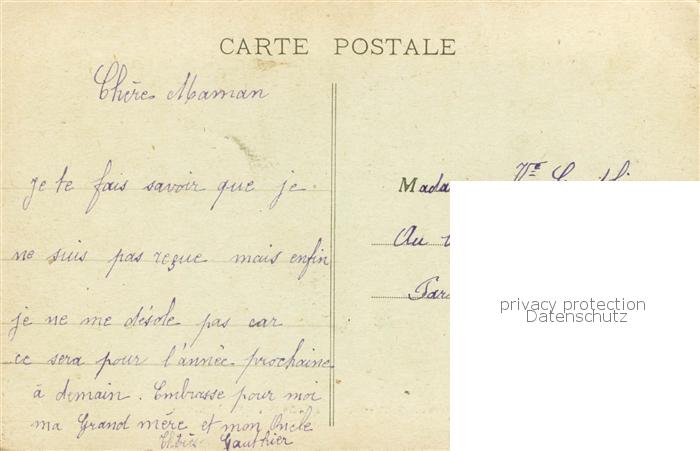 CARTE POSTALE
Chère Maman
je te fais savoir que je
ne suis pas reçue mais enfin
je ne me désole pas car
ce sera pour l'année prochaine
à demain. Embrasse pour moi
ma Grand mère et mon Oncle
Gauthier
Mada
Vve
Au
privacy protection
Datenschutz